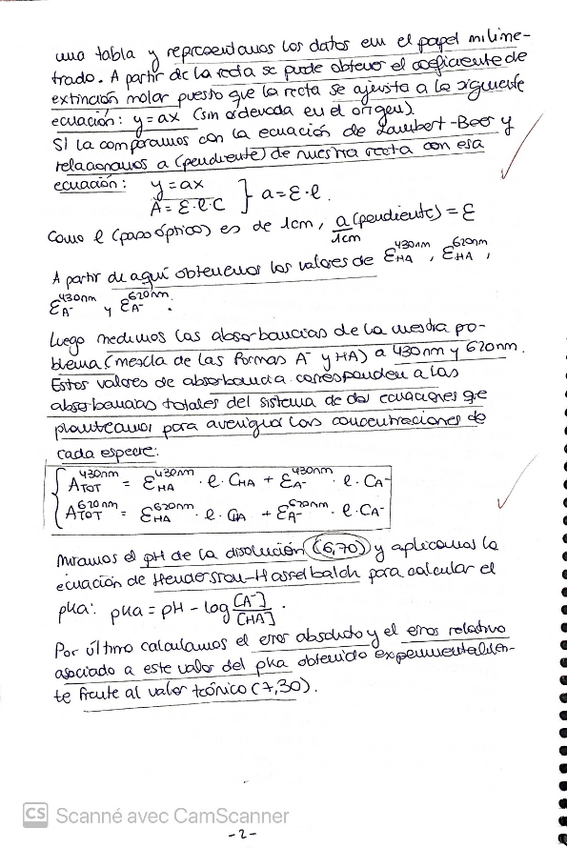 una tabla y representamos los datos en el papel milime-
trado. A partir de la recta se puede obtener el coeficiente de
extinción molar puesto que la recta se ajusta a la siguiente
ecuación: y=ax (sin ordenada en el origen).
Si la comparamos con la ecuación de Lambert-Beer y
relacionamos a (pendiente) de nuestra recta con esa
ecuación: y=ax
A = ε·l·C } a = ε·l.
Como l (paso óptico) es de 1cm, a (pendiente)/1cm = ε
A partir de aquí obtenemos los valores de ε_HA^430nm, ε_HA^620nm,
ε_A-^430nm y ε_A-^620nm.
Luego medimos las absorbancias de la muestra pro-
blema (mezcla de las formas A⁻ y HA) a 430nm y 620nm.
Estos valores de absorbancia corresponden a las
absorbancias totales del sistema de dos ecuaciones que
planteamos para averiguar las concentraciones de
cada especie:
A_TOT^430nm = ε_HA^430nm · l · C_HA + ε_A-^430nm · l · C_A-
A_TOT^620nm = ε_HA^620nm · l · C_HA + ε_A-^620nm · l · C_A-
Miramos el pH de la disolución (6,70) y aplicamos la
ecuación de Henderson-Hasselbalch para calcular el
pKa: pKa = pH - log [A⁻]/[HA].
Por último calculamos el error absoluto y el error relativo
asociado a este valor del pKa obtenido experimentalmen-
te frente al valor teórico (7,30).
CS Scanné avec CamScanner
-2-